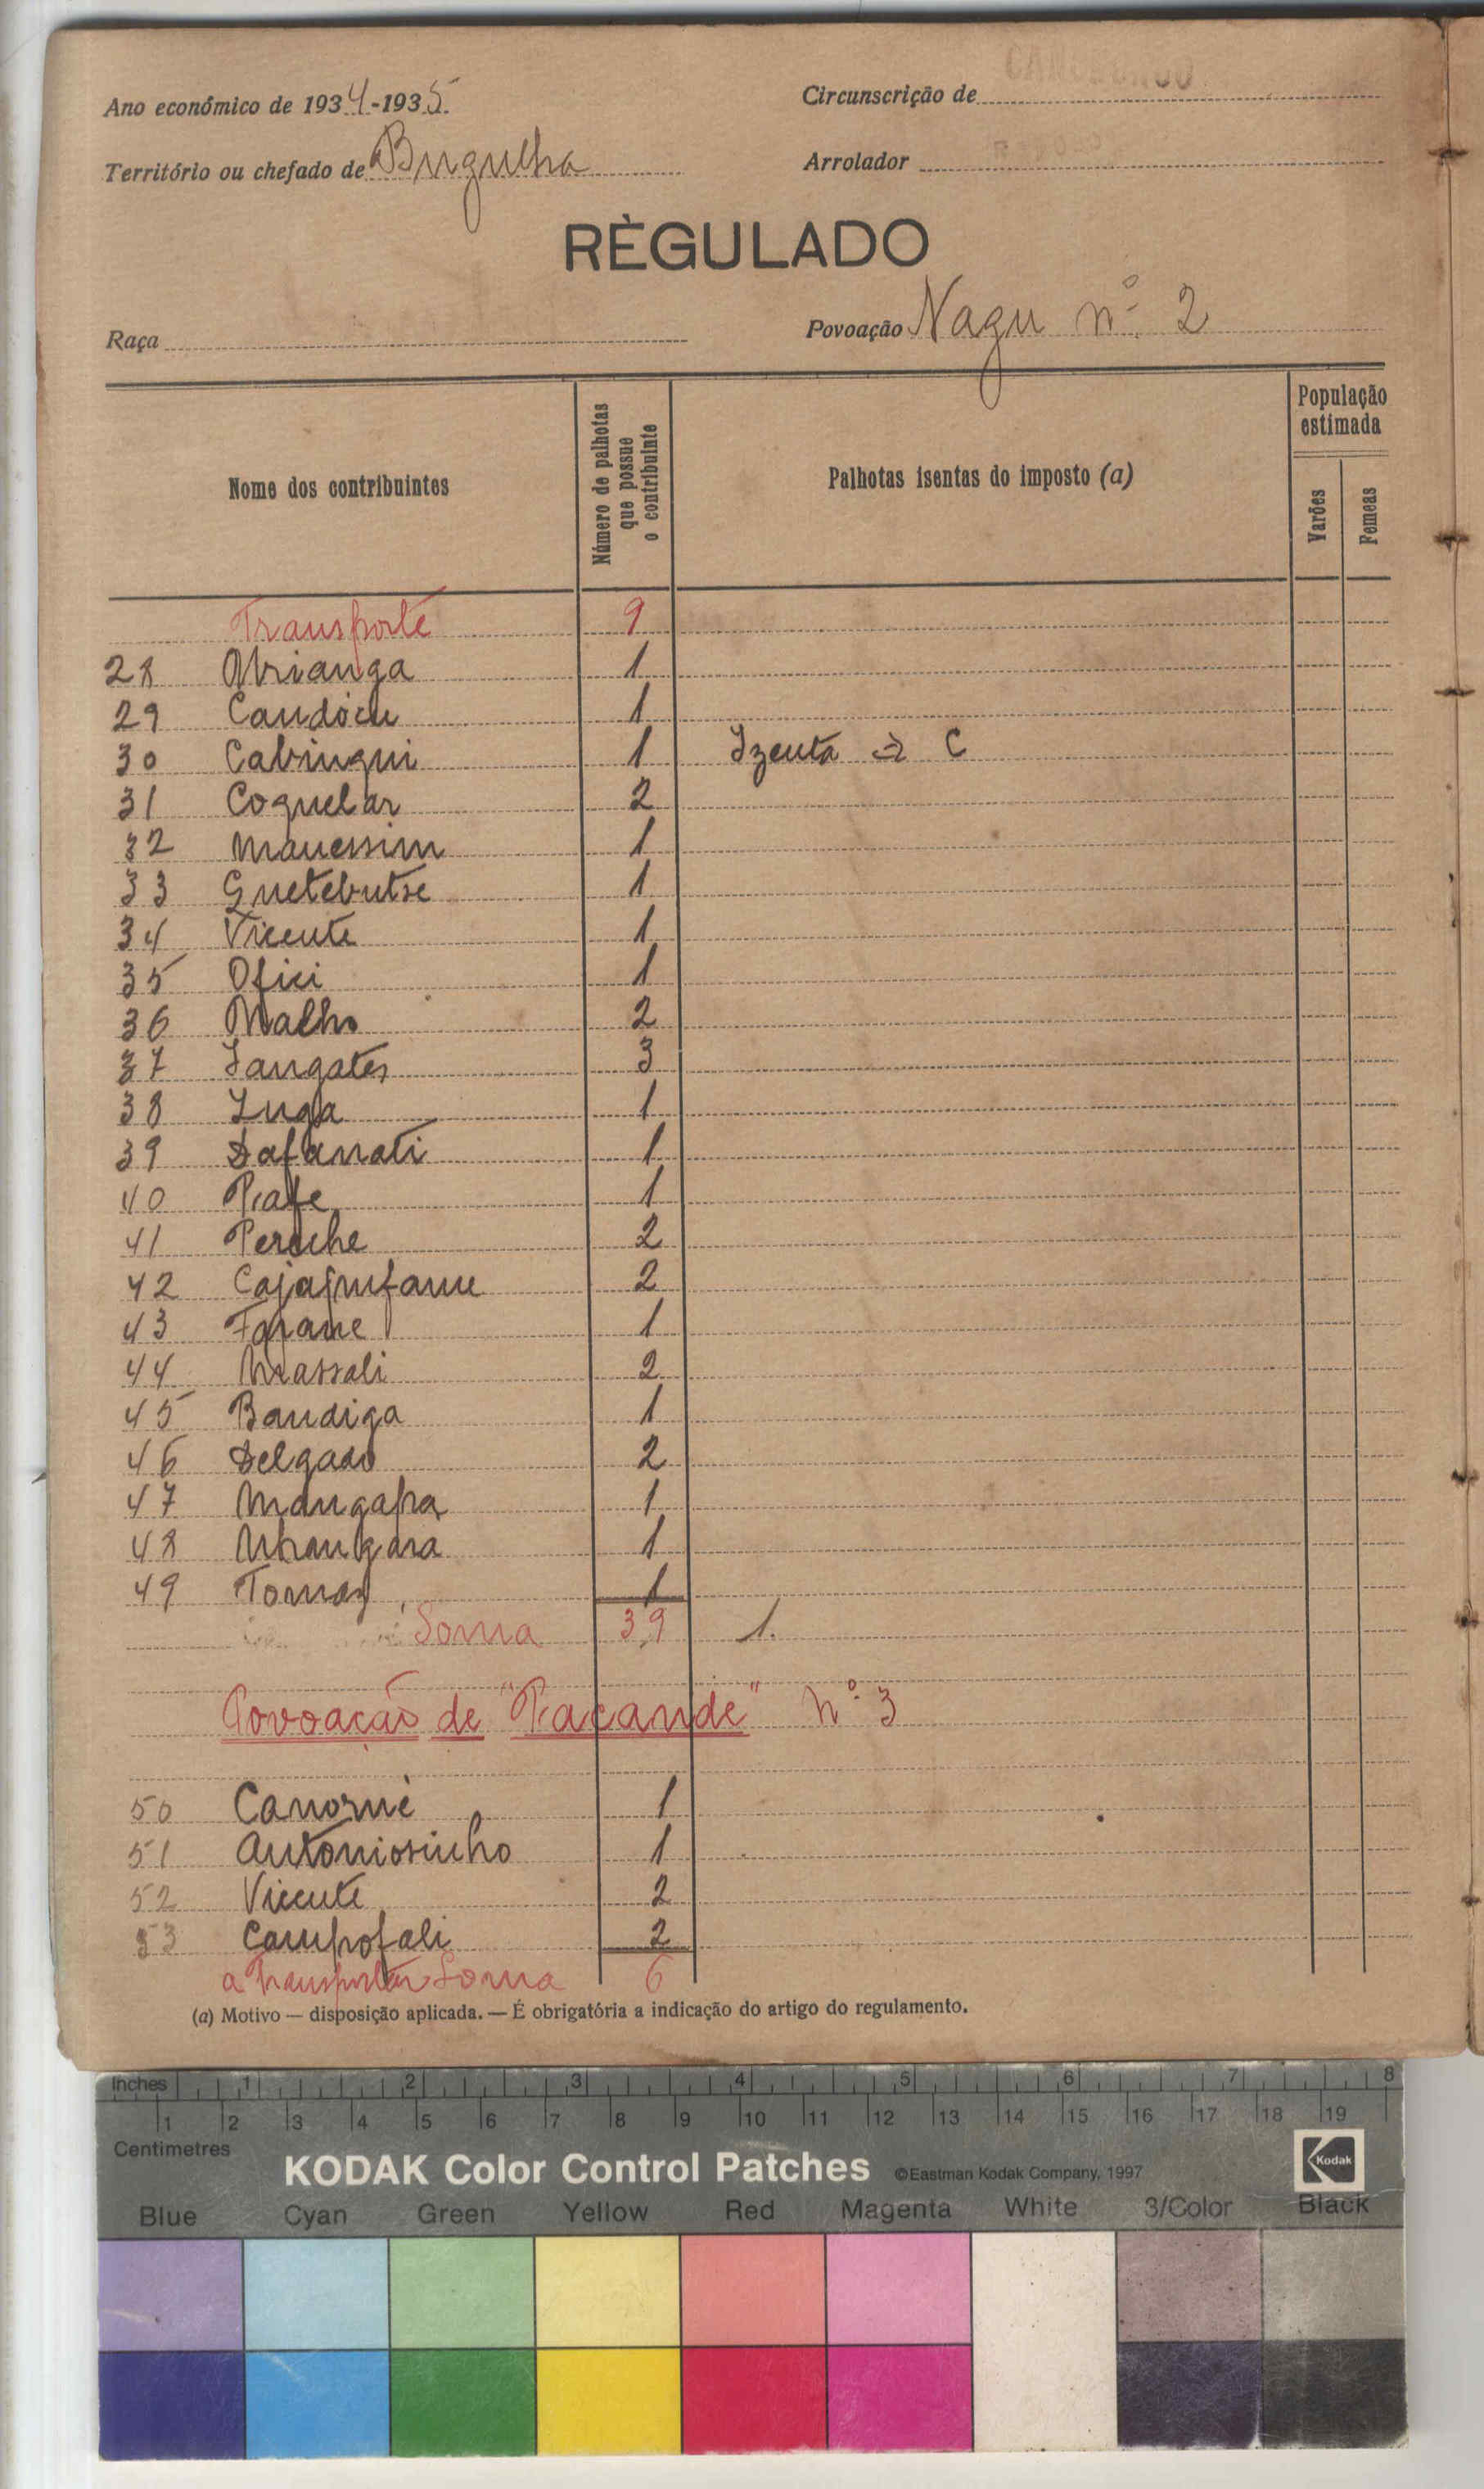 Ano económico de 1934-1935.
Circunscrição de
Território ou chefado de Bugulha
Arrolador
RÈGULADO
Raça
Povoação Nagu nº 2
Nome dos contribuintes
Número de palhotas que possue o contribuinte
Palhotas isentas do imposto (a)
População estimada
Varões
Femeas
Transporte 9
28 1
29 1
30 Cabingui 1 Izenta C
31 Coquelar 2
32 Manessim 1
33 Guetebutse 1
34 Vicente 1
35 Ofici 1
36 Malho 2
37 Jangates 3
38 1
39 Dafanati 1
40 1
41 Peruche 2
42 2
43 1
44 Massali 2
45 Bandiga 1
46 Delgado 2
47 Mangapra 1
48 1
49 Tomaz 1
Soma 39 1.
Povoação de "Pacande" nº 3
50 1
51 Antoniosinho 1
52 Vicente 2
53 Campofali 2
a Transportar Soma 6
(a) Motivo — disposição aplicada. — É obrigatória a indicação do artigo do regulamento.
Inches 1 2 3 4 5 6 7 8
1 2 3 4 5 6 7 8 9 10 11 12 13 14 15 16 17 18 19
Centimetres
KODAK Color Control Patches ©Eastman Kodak Company, 1997 Kodak
Blue Cyan Green Yellow Red Magenta White 3/Color Black